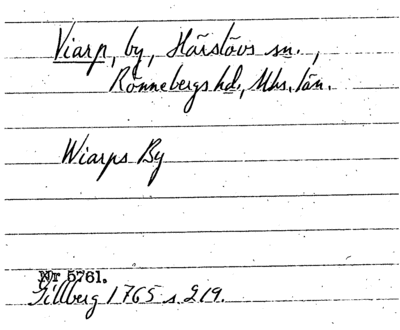 Viarp, by, Härslövs sn.,
Rönnebergs hd., Mhs. län.
Wiarps By
Nr 5761.
Gillberg 1765 s. 219.